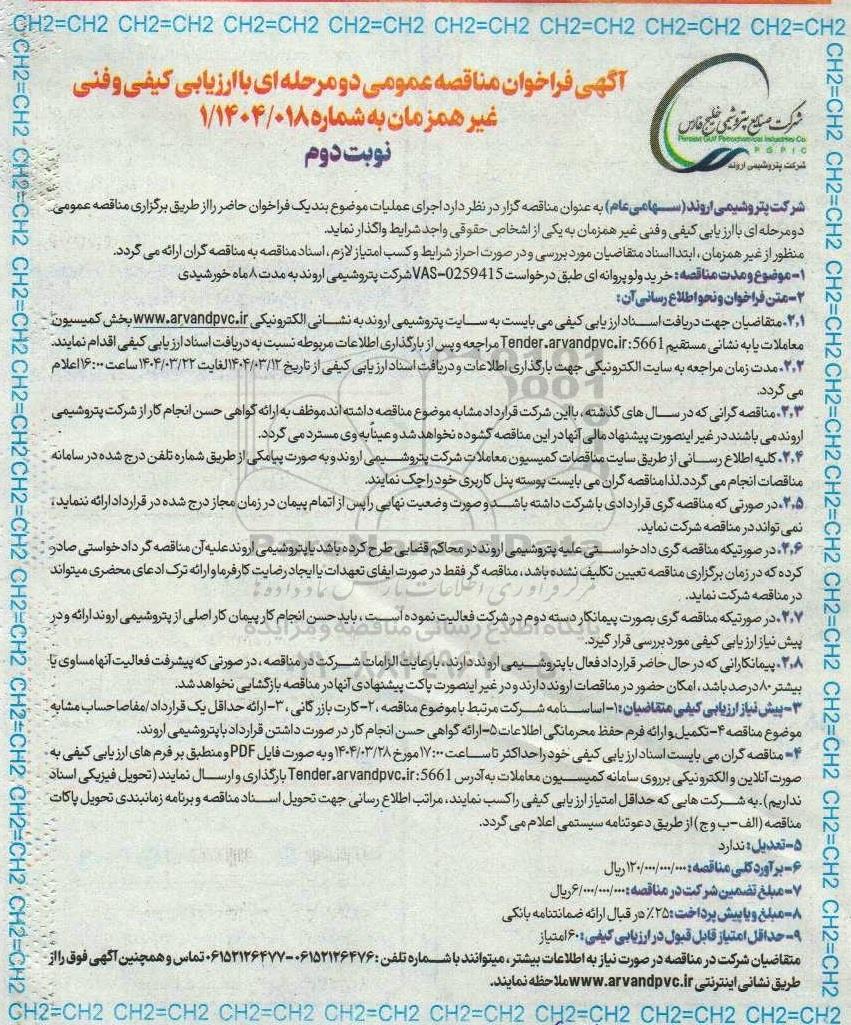 CH2=CH2 CH2=CH2 CH2=CH2 CH2=CH2 CH2=CH2 CH2=CH2 CH2=CH2 CH2=CH2
آگهی فراخوان مناقصه عمومی دو مرحله ای با ارزیابی کیفی و فنی
غیر همزمان به شماره ۱/۱۴۰۴/۰۱۸
نوبت دوم
شرکت صنایع پتروشیمی خلیج فارس
Persian Gulf Petrochemical Industries Co
P G P I C
شرکت پتروشیمی اروند
شرکت پتروشیمی اروند (سهامی عام) به عنوان مناقصه گزار در نظر دارد اجرای عملیات موضوع بند یک فراخوان حاضر را از طریق برگزاری مناقصه عمومی
دو مرحله ای با ارزیابی کیفی و فنی غیر همزمان به یکی از اشخاص حقوقی واجد شرایط واگذار نماید.
منظور از غیر همزمان ، ابتدا اسناد متقاضیان مورد بررسی و در صورت احراز شرایط و کسب امتیاز لازم ، اسناد مناقصه به مناقصه گران ارائه می گردد.
۱- موضوع و مدت مناقصه: خرید ولو پروانه ای طبق درخواست VAS-0259415 شرکت پتروشیمی اروند به مدت ۸ ماه خورشیدی
۲- متن فراخوان و نحو اطلاع رسانی آن:
۲٫۱. متقاضیان جهت دریافت اسناد ارزیابی کیفی می بایست به سایت پتروشیمی اروند به نشانی الکترونیکی www.arvandpvc.ir بخش کمیسیون
معاملات یا به نشانی مستقیم Tender.arvandpvc.ir:5661 مراجعه و پس از بارگذاری اطلاعات مربوطه نسبت به دریافت اسناد ارزیابی کیفی اقدام نمایند.
۲٫۲. مدت زمان مراجعه به سایت الکترونیکی جهت بارگذاری اطلاعات و دریافت اسناد ارزیابی کیفی از تاریخ ۱۴۰۴/۰۳/۱۲ لغایت ۱۴۰۴/۰۳/۲۲ ساعت ۱۶:۰۰ اعلام
می گردد.
۲٫۳. مناقصه گرانی که در سال های گذشته ، با این شرکت قرارداد مشابه موضوع مناقصه داشته اند موظف به ارائه گواهی حسن انجام کار از شرکت پتروشیمی
اروند می باشند در غیر اینصورت پیشنهاد مالی آنها در این مناقصه گشوده نخواهد شد و عیناً به وی مسترد می گردد.
۲٫۴. کلیه اطلاع رسانی از طریق سایت مناقصات کمیسیون معاملات شرکت پتروشیمی اروند و به صورت پیامکی از طریق شماره تلفن درج شده در سامانه
مناقصات انجام می گردد. لذا مناقصه گران می بایست پوسته پنل کاربری خود را چک نمایند.
۲٫۵. در صورتی که مناقصه گری قراردادی با شرکت داشته باشد و صورت وضعیت نهایی را پس از اتمام پیمان در زمان مجاز درج شده در قرارداد ارائه ننماید ،
نمی تواند در مناقصه شرکت نماید.
۲٫۶. در صورتیکه مناقصه گری دادخواستی علیه پتروشیمی اروند در محاکم قضایی طرح کرده باشد یا پتروشیمی اروند علیه آن مناقصه گر دادخواستی صادر
کرده که در زمان برگزاری مناقصه تعیین تکلیف نشده باشد ، مناقصه گر فقط در صورت ایفای تعهدات یا ایجاد رضایت کارفرما و ارائه ترک ادعای محضری میتواند
در مناقصه شرکت نماید.
۲٫۷. در صورتیکه مناقصه گری بصورت پیمانکار دسته دوم در شرکت فعالیت نموده است ، باید حسن انجام کار پیمان کار اصلی از پتروشیمی اروند ارائه و در
پیش نیاز ارزیابی کیفی مورد بررسی قرار گیرد.
۲٫۸. پیمانکارانی که در حال حاضر قرارداد فعال با پتروشیمی اروند دارند ، با رعایت الزامات شرکت در مناقصه ، در صورتی که پیشرفت فعالیت آنها مساوی یا
بیشتر ۸۰ درصد باشد ، امکان حضور در مناقصات اروند دارند و در غیر اینصورت پاکت پیشنهادی آنها در مناقصه بازگشایی نخواهد شد.
۳- پیش نیاز ارزیابی کیفی متقاضیان: ۱- اساسنامه شرکت مرتبط با موضوع مناقصه ، ۲- کارت بازرگانی ، ۳- ارائه حداقل یک قرارداد/مفاصا حساب مشابه
موضوع مناقصه ۴- تکمیل و ارائه فرم حفظ محرمانگی اطلاعات ۵- ارائه گواهی حسن انجام کار در صورت داشتن قرارداد با پتروشیمی اروند.
۴- مناقصه گران می بایست اسناد ارزیابی کیفی خود را حداکثر تا ساعت ۱۷:۰۰ مورخ ۱۴۰۴/۰۳/۲۸ و به صورت فایل PDF و منطبق بر فرم های ارزیابی کیفی به
صورت آنلاین و الکترونیکی بر روی سامانه کمیسیون معاملات به آدرس Tender.arvandpvc.ir:5661 بارگذاری و ارسال نمایند (تحویل فیزیکی اسناد
نداریم). به شرکت هایی که حداقل امتیاز ارزیابی کیفی را کسب نمایند، مراتب اطلاع رسانی جهت تحویل اسناد مناقصه و برنامه زمانبندی تحویل پاکات
مناقصه (الف-ب و ج) از طریق دعوتنامه سیستمی اعلام می گردد.
۵- تعدیل: ندارد
۶- برآورد کلی مناقصه: ۱۲۰/۰۰۰/۰۰۰/۰۰۰ ریال
۷- مبلغ تضمین شرکت در مناقصه: ۶/۰۰۰/۰۰۰/۰۰۰ ریال
۸- مبلغ و یا پیش پرداخت: ۲۵٪ در قبال ارائه ضمانتنامه بانکی
۹- حداقل امتیاز قابل قبول در ارزیابی کیفی: ۶۰ امتیاز
متقاضیان شرکت در مناقصه در صورت نیاز به اطلاعات بیشتر ، میتوانند با شماره تلفن : ۰۶۱۵۲۱۲۶۴۷۶-۰۶۱۵۲۱۲۶۴۷۷ تماس و همچنین آگهی فوق را از
طریق نشانی اینترنتی www.arvandpvc.ir ملاحظه نمایند.
CH2=CH2 CH2=CH2 CH2=CH2 CH2=CH2 CH2=CH2 CH2=CH2 CH2=CH2 CH2=CH2